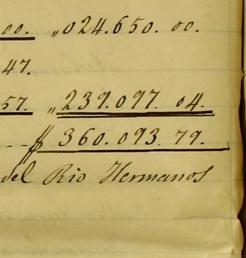 00. „024.650. 00.
47.
57. „239.097. 04.
$ 360.093. 79.
del Rio Hermanos